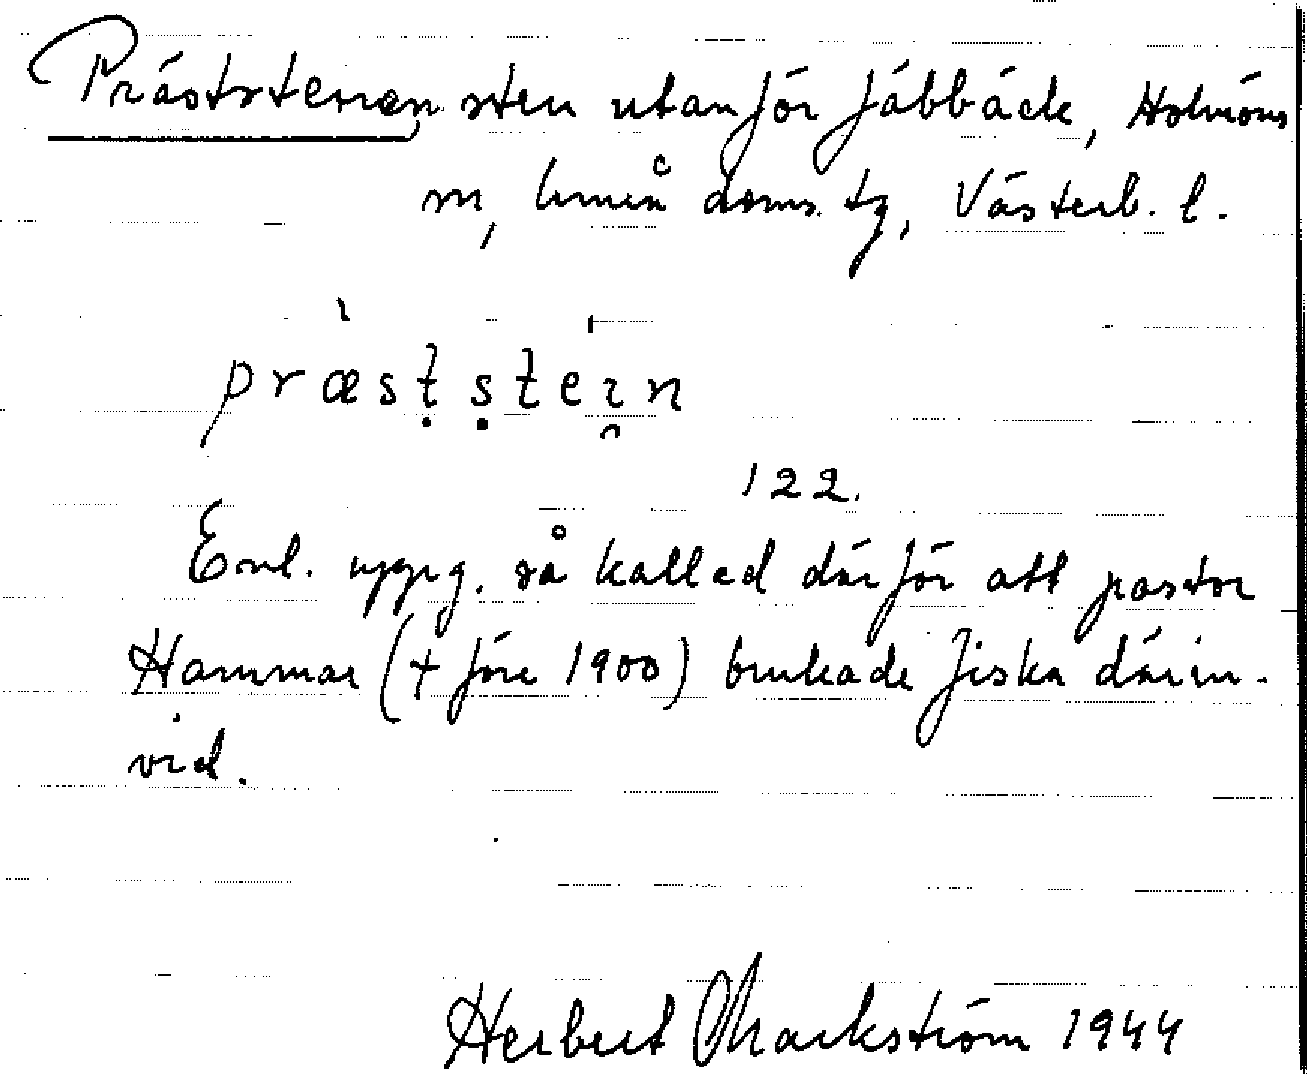 Präststenen, sten utanför Jäbbäck, Holmöns
m, Umeå doms. tg, Västerb. l.
præsṭṣṭei̯n
122.
Enl. uppg. så kallad därför att pastor
Hammar († före 1900) brukade fiska därin-
vid.
Herbert Markström 1944